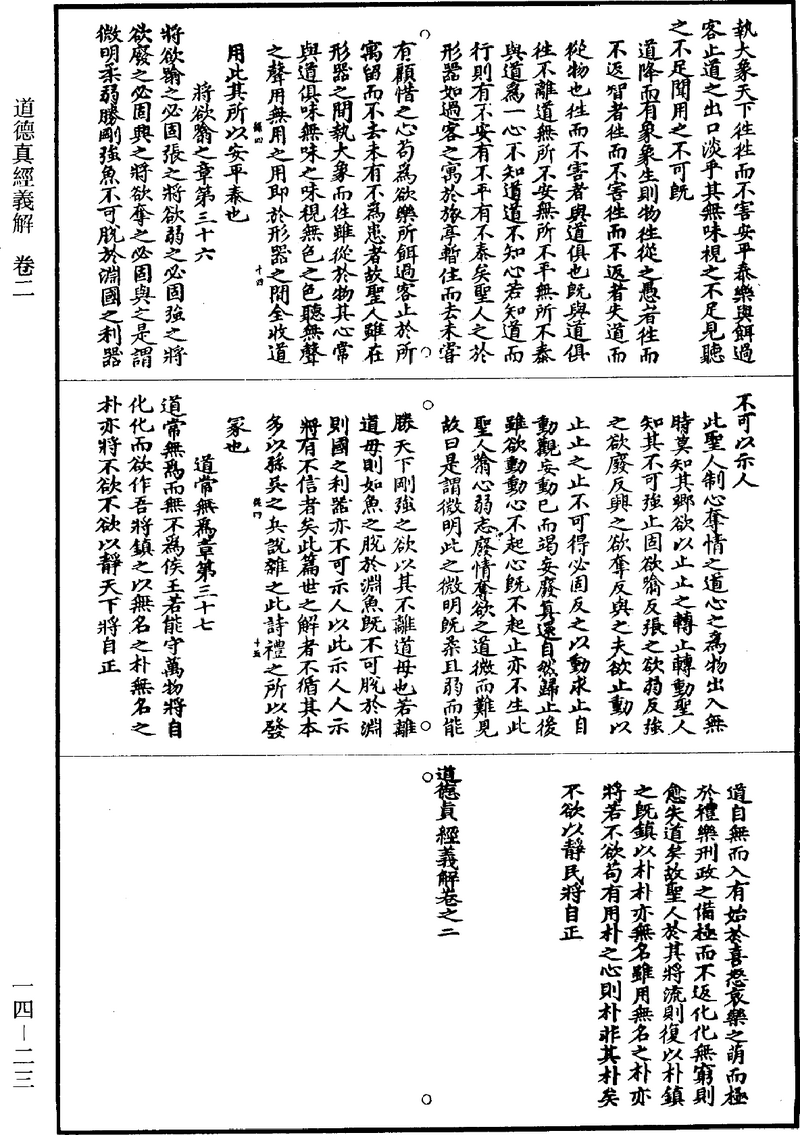 執大象天下往往而不害安平泰樂與餌過
客止道之出口淡乎其無味視之不足見聽
之不足聞用之不可既
道降而有象象生則物往從之愚者往而
不返智者往而不害往而不返者失道而
從物也往而不害者與道俱也既與道俱
往不離道無所不安無所不平無所不泰
與道為一心不知道道不知心若知道而
行則有不安有不平有不泰矣聖人之於
形器如過客之寓於旅亭暫住而去未嘗
有顧惜之心苟為欲樂所餌過客止於所
寓留而不去未有不為患者故聖人雖在
形器之間執大象而往雖從於物其心常
與道俱味無味之味視無色之色聽無聲
之聲用無用之用即於形器之間全收道
用此其所以安平泰也
將欲翕之章第三十六
將欲翕之必固張之將欲弱之必固強之將
欲廢之必固興之將欲奪之必固與之是謂
微明柔弱勝剛強魚不可脫於淵國之利器
不可以示人
此聖人制心奪情之道心之為物出入無
時莫知其鄉欲以止止之轉止轉動聖人
知其不可強止固欲翕反張之欲弱反強
之欲廢反興之欲奪反與之夫欲止動以
止止之止不可得必固反之以動求止自
動觀妄動已而竭妄廢真還自然歸止後
雖欲動動心不起心既不起止亦不生此
聖人翕心弱志廢情奪欲之道微而難見
故曰是謂微明此之微明既柔且弱而能
勝天下剛強之欲以其不離道母也若離
道母則如魚之脫於淵魚既不可脫於淵
則國之利器亦不可示人以此示人人示
將有不信者矣此篇世之解者不循其本
多以孫吳之兵說雜之此詩禮之所以發
冢也
道常無為章第三十七
道常無為而無不為侯王若能守萬物將自
化化而欲作吾將鎮之以無名之朴無名之
朴亦將不欲不欲以靜天下將自正
道自無而入有始於喜怒哀樂之萌而極
於禮樂刑政之備極而不返化化無窮則
愈失道矣故聖人於其將流則復以朴鎮
之既鎮以朴朴亦無名雖用無名之朴亦
將若不欲苟有用朴之心則朴非其朴矣
不欲以靜民將自正
道德真經義解卷之二
道德真經義解 卷二
一四－二三